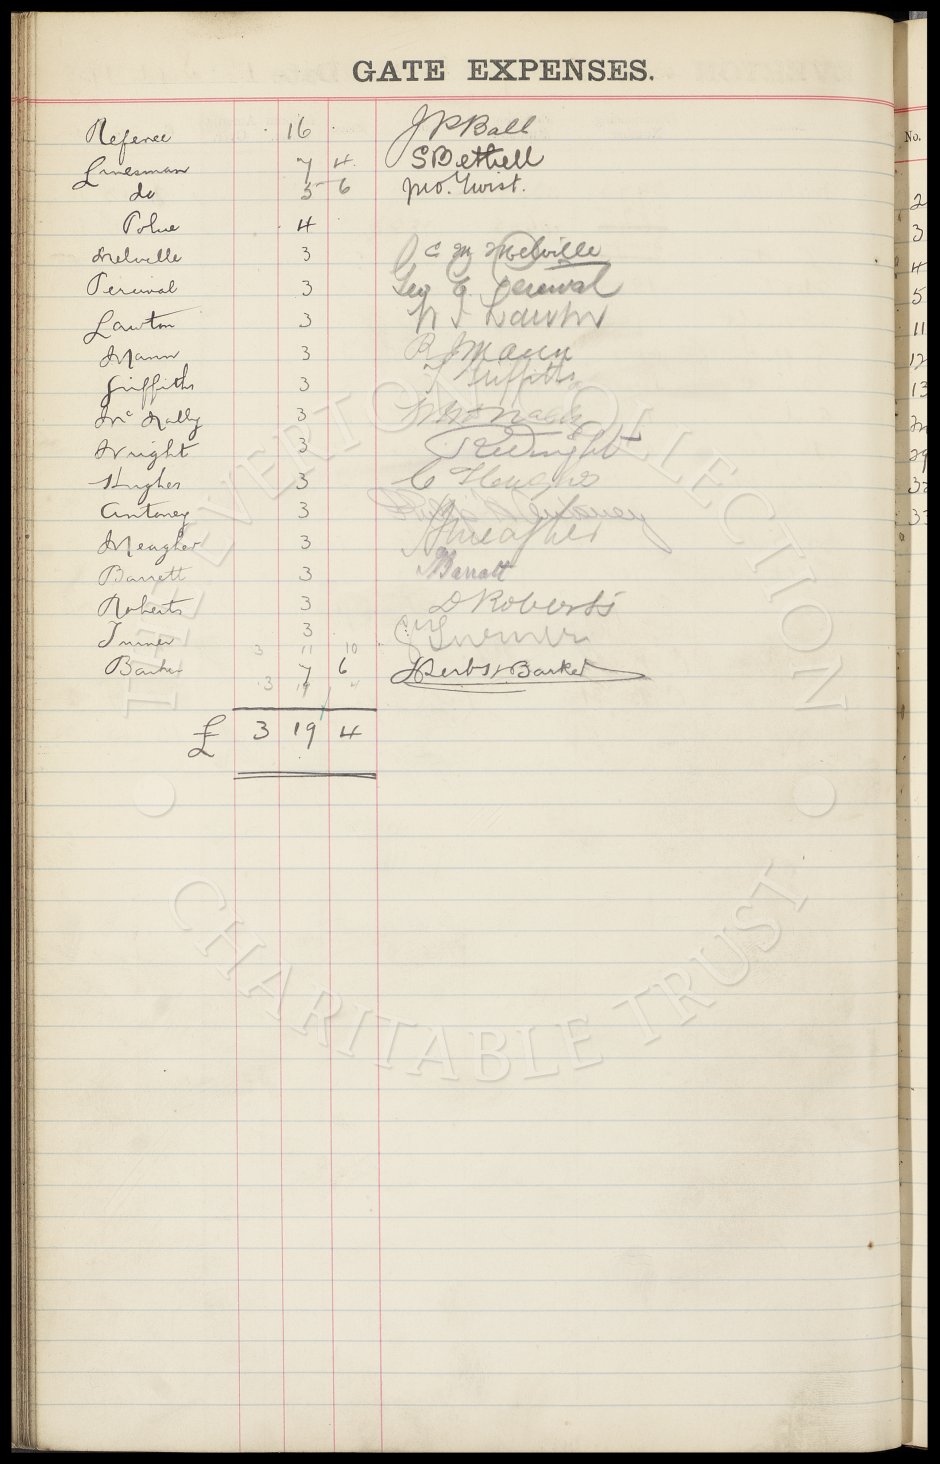 GATE EXPENSES.
Referee 16 J P Ball
Linesman 7 4 S Bethell
do 5 6 Jno. Twist.
Police 4
Melville 3 C M Melville
Percival 3 Geo E. Percival
Lawton 3 Lawton
Mann 3 Mann
Griffiths 3 Griffiths
Mc Nally 3 McNally
Wright 3 Wright
Hughes 3 C Hughes
Antoney 3 Antoney
Meagher 3 Meagher
Barrett 3 Barratt
Roberts 3 D Roberts
Turner 3 Turner
3 11 10
Barker 7 6 Herbt Barker
3 19 4
£ 3 19 4
No.
2
3
4
5
11
12
13
29
32
33
THE EVERTON COLLECTION
CHARITABLE TRUST